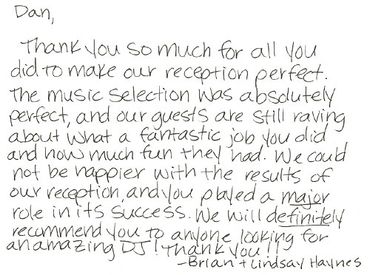 Dan,
Thank you so much for all you
did to make our reception perfect.
The music selection was absolutely
perfect, and our guests are still raving
about what a fantastic job you did
and how much fun they had. We could
not be happier with the results of
our reception, and you played a major
role in its success. We will definitely
recommend you to anyone looking for
an amazing DJ! Thank you!!
-Brian + Lindsay Haynes